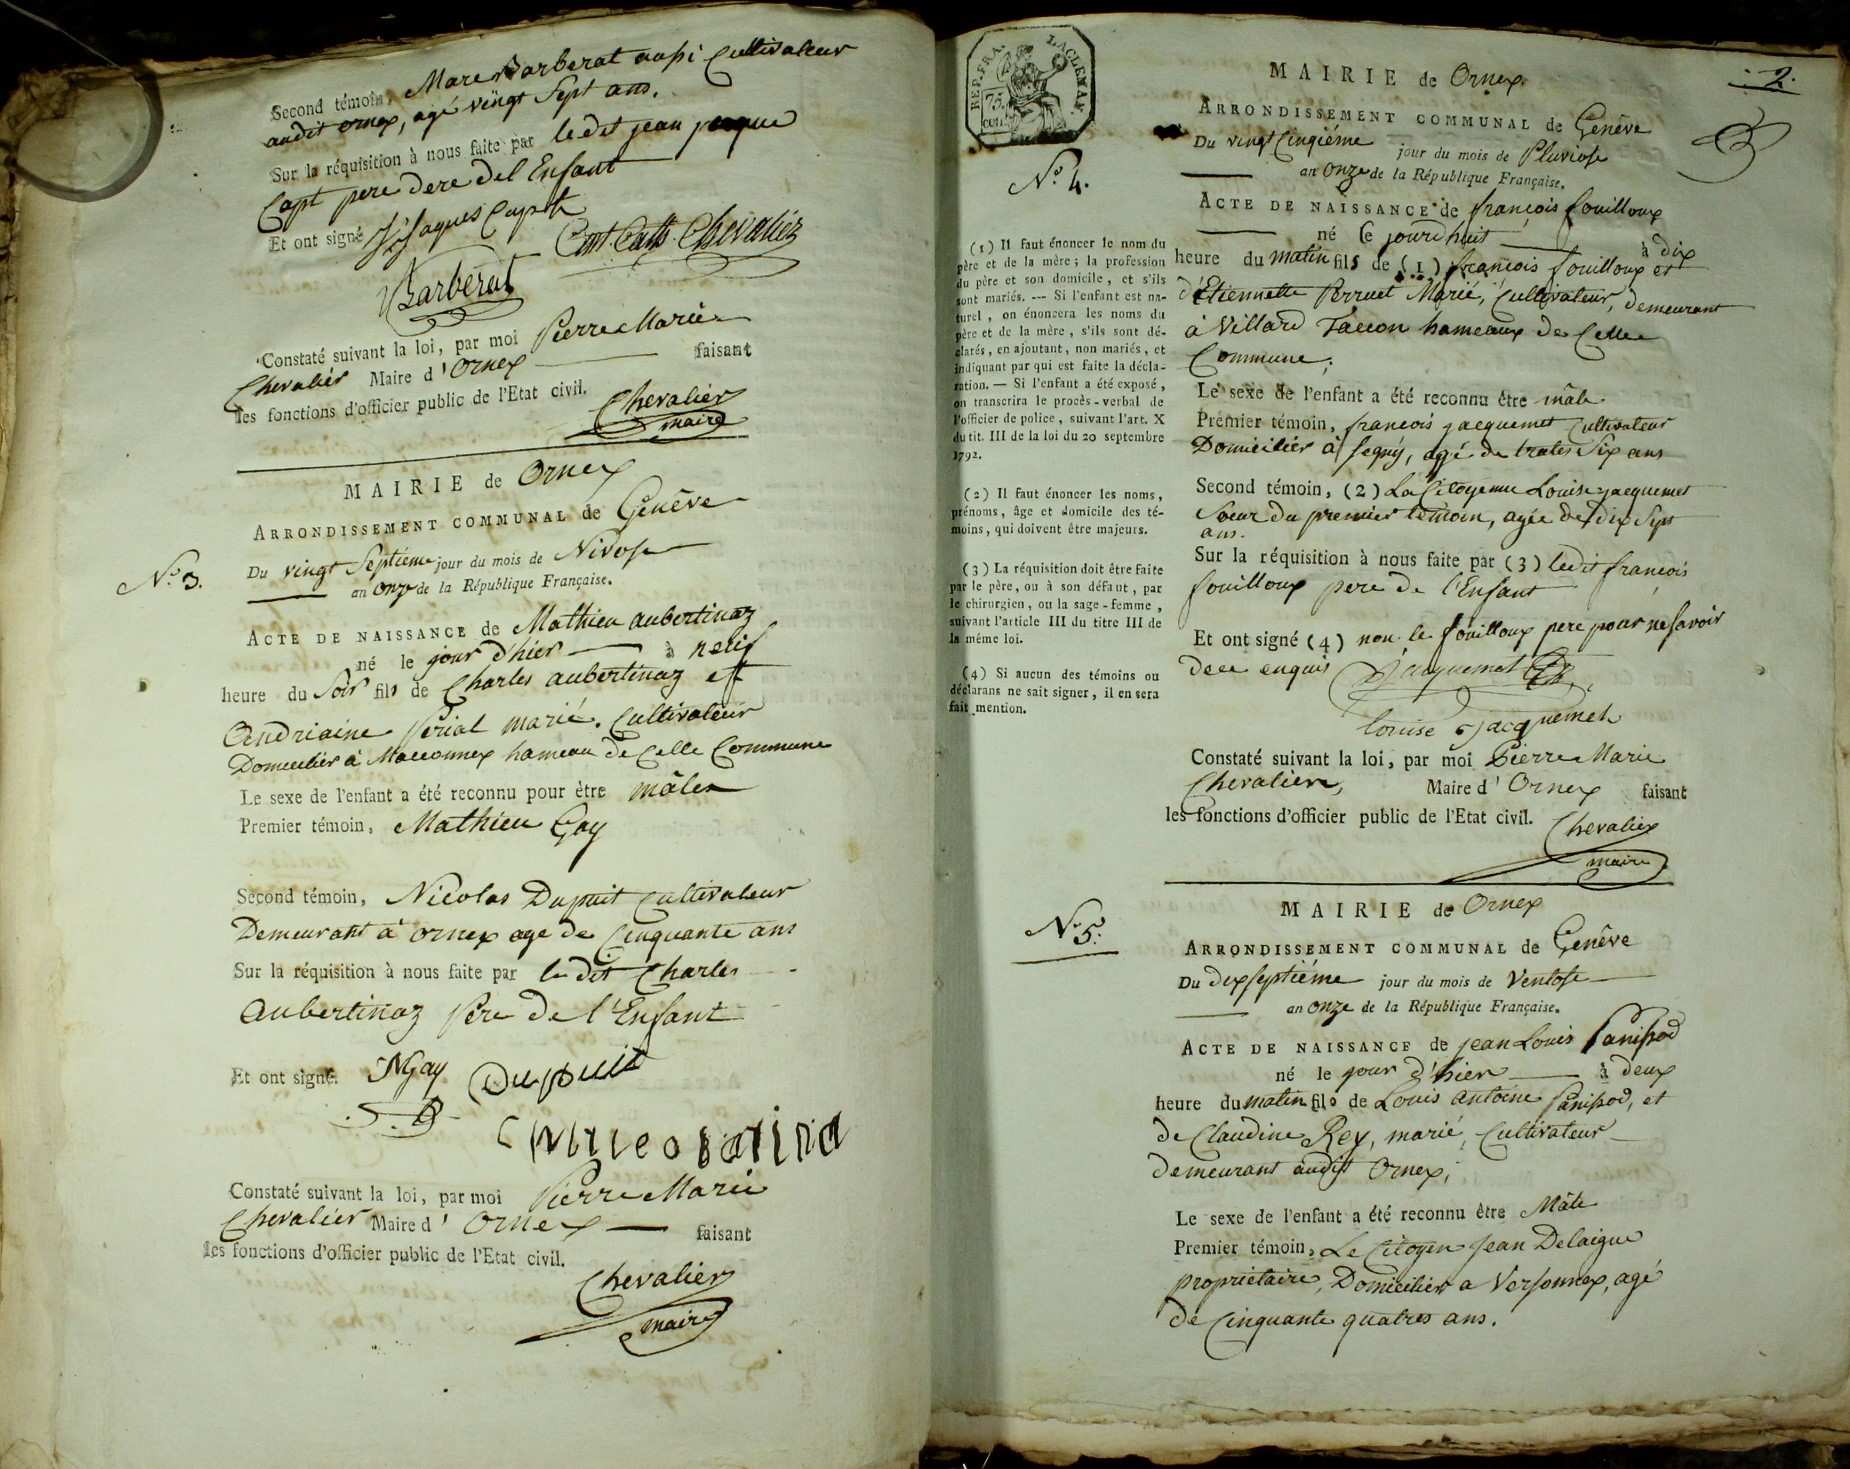 Second témoin, Marc Barberat aussi Cultivateur
audit ornex, agé vingt Sept ans.
Sur la réquisition à nous faite par le dit jean jaque
Capt pere dere del Enfant
Et ont signé JJaques Capt
Barberat
Chevalier
Constaté suivant la loi, par moi Pierre Marie
Chevalier Maire d' Ornex faisant
les fonctions d'officier public de l'Etat civil.
Chevalier
maire
MAIRIE de Ornex
ARRONDISSEMENT COMMUNAL de Genêve
No 3.
Du vingt Septiéme jour du mois de Nivose
an Onze de la République Française.
ACTE DE NAISSANCE de Mathieu aubertinaz
né le jour d'hier à neuf
heure du Soir fils de Charles aubertinaz et
Andriaine Perial marié. Cultivateur
Domicilier à Maconnex hameau de Celle Commune
Le sexe de l'enfant a été reconnu pour être mâle
Premier témoin, Mathieu Gay
Second témoin, Nicolas Dupuit Cultivateur
Demeurant à ornex age de Cinquante ans
Sur la réquisition à nous faite par le dit Charles
Aubertinaz Pere De l'Enfant
Et ont signé. MGay Dupuit
Constaté suivant la loi, par moi Pierre Marie
Chevalier Maire d' Ornex faisant
les fonctions d'officier public de l'Etat civil.
Chevalier
maire
REP. FRA.
75.
cen.
2.
MAIRIE de Ornex.
ARRONDISSEMENT COMMUNAL de Genêve
Du vingt Cinqiéme jour du mois de Pluviose
an Onze de la République Française.
No 4.
ACTE DE NAISSANCE de françois fouilloux
né Ce jourd'huit à dix
heure du matin fils de (1) françois fouilloux et
d'Etiennette Perruet Marié, Cultivateur, demeurant
à Villard Taccon hameaux de Celle
Commune;
Le sexe de l'enfant a été reconnu être mâle
Premier témoin, francois jacquemet Cultivateur
Domicilier à Segny, agé de trates Six ans
Second témoin, (2) La Citoyenne Louise jacquemet
Soeur du premier témoin, agée de dix Sept
ans.
Sur la réquisition à nous faite par (3) ledit francois
fouilloux pere de l'Enfant
Et ont signé (4) non le fouilloux pere pour ne savoir
dece enquis Jacquemet
louise jacquemet
Constaté suivant la loi, par moi Pierre Marie
Chevalier, Maire d' Ornex faisant
les fonctions d'officier public de l'Etat civil.
Chevalier
maire
(1) Il faut énoncer le nom du
père et de la mère; la profession
du père et son domicile, et s'ils
sont mariés. -- Si l'enfant est na-
turel, on énoncera les noms du
père et de la mère, s'ils sont dé-
clarés, en ajoutant, non mariés, et
indiquant par qui est faite la décla-
ration. — Si l'enfant a été exposé,
on transcrira le procès-verbal de
l'officier de police, suivant l'art. X
du tit. III de la loi du 20 septembre
1792.
(2) Il faut énoncer les noms,
prénoms, âge et domicile des té-
moins, qui doivent être majeurs.
(3) La réquisition doit être faite
par le père, ou à son défaut, par
le chirurgien, ou la sage-femme,
suivant l'article III du titre III de
la même loi.
(4) Si aucun des témoins ou
déclarans ne sait signer, il en sera
fait mention.
No 5.
MAIRIE de Ornex
ARRONDISSEMENT COMMUNAL de Genêve
Du dixseptiéme jour du mois de Ventose
an Onze de la République Française.
ACTE DE NAISSANCE de jean Louis Panissod
né le jour d'hier à deux
heure du matin fils de Louis antoine Panissod, et
de Claudine Rey, marié, Cultivateur
demeurant audit Ornex;
Le sexe de l'enfant a été reconnu être Mâle
Premier témoin, Le Citoyen Jean Delaigue
proprietaire, Domicilier a Versonnex, agé
de Cinquante quatres ans.